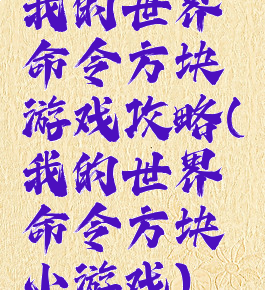 我的世界
命令方块
游戏攻略(
我的世界
命令方块
小游戏)